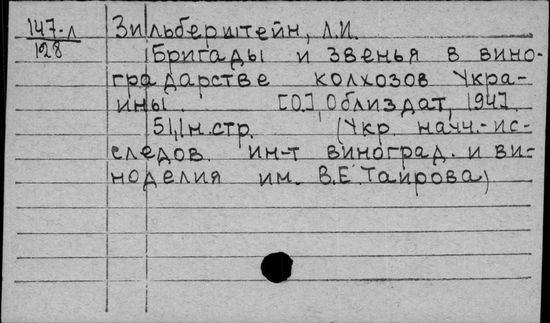 147-л Зильберштейн, Л.И.
128
Бригады и звенья в вино-
градарстве колхозов Укра-
ины. [О.], Облиздат, 1947.
51,1н.стр. (Укр. научн.-ис-
следов. ин-т виноград. и ви-
ноделия им. В.Е. Таирова)